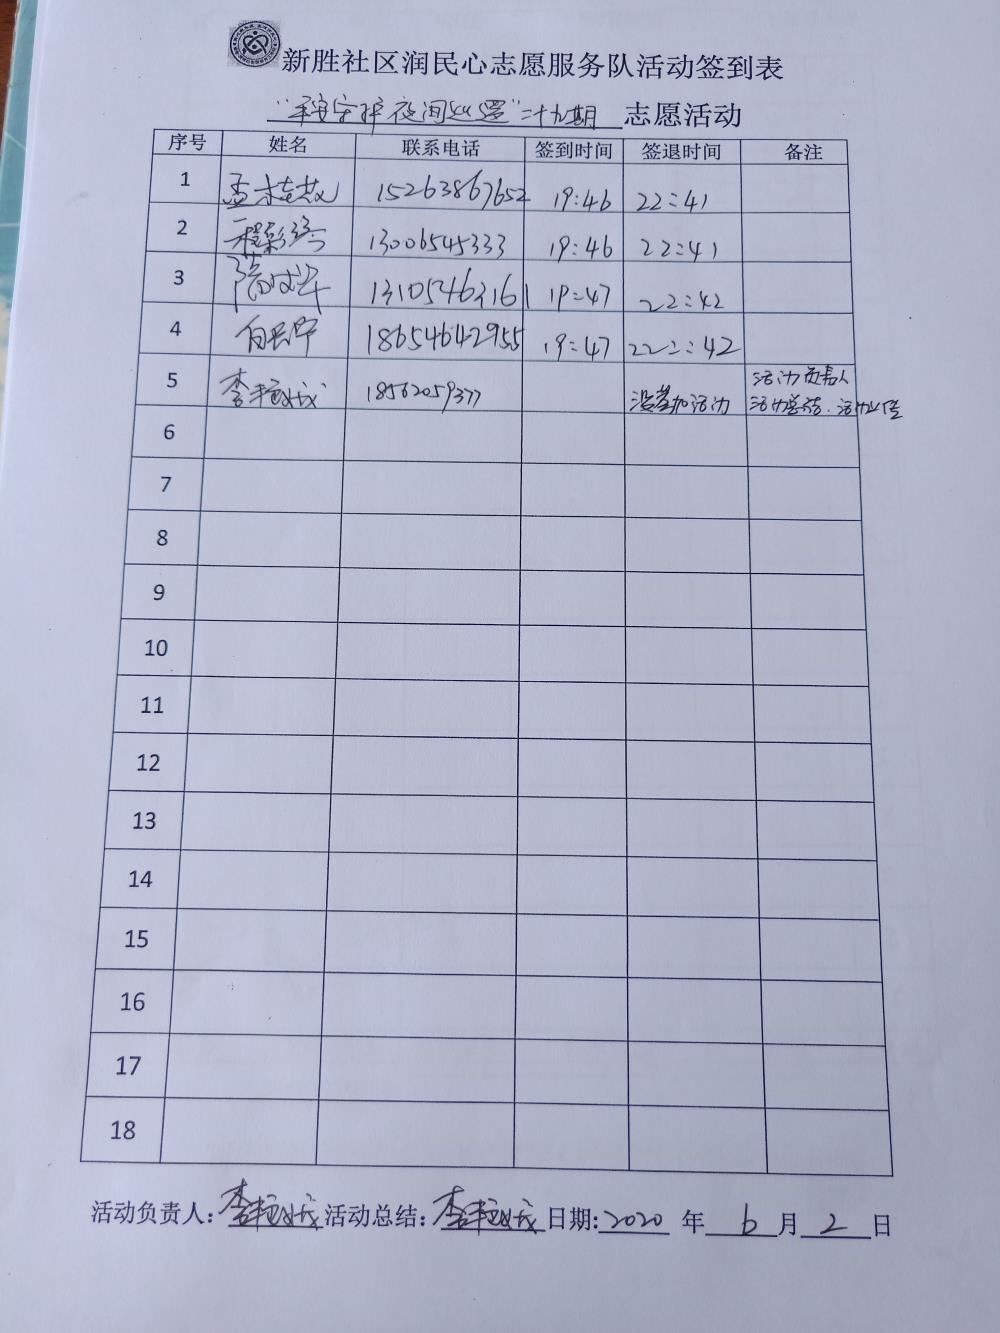 新胜社区润民心志愿服务队活动签到表
"平安守护夜间巡逻"二十九期 志愿活动
序号 姓名 联系电话 签到时间 签退时间 备注
1 15263867652 19:46 22:41
2 13006545333 19:46 22:41
3 13105463161 19:47 22:42
4 18654642955 19:47 22:42
5 李艳成 18562059377 没参加活动 活动负责人
活动总结.
6
7
8
9
10
11
12
13
14
15
16
17
18
活动负责人: 活动总结: 日期: 2020 年 6 月 2 日